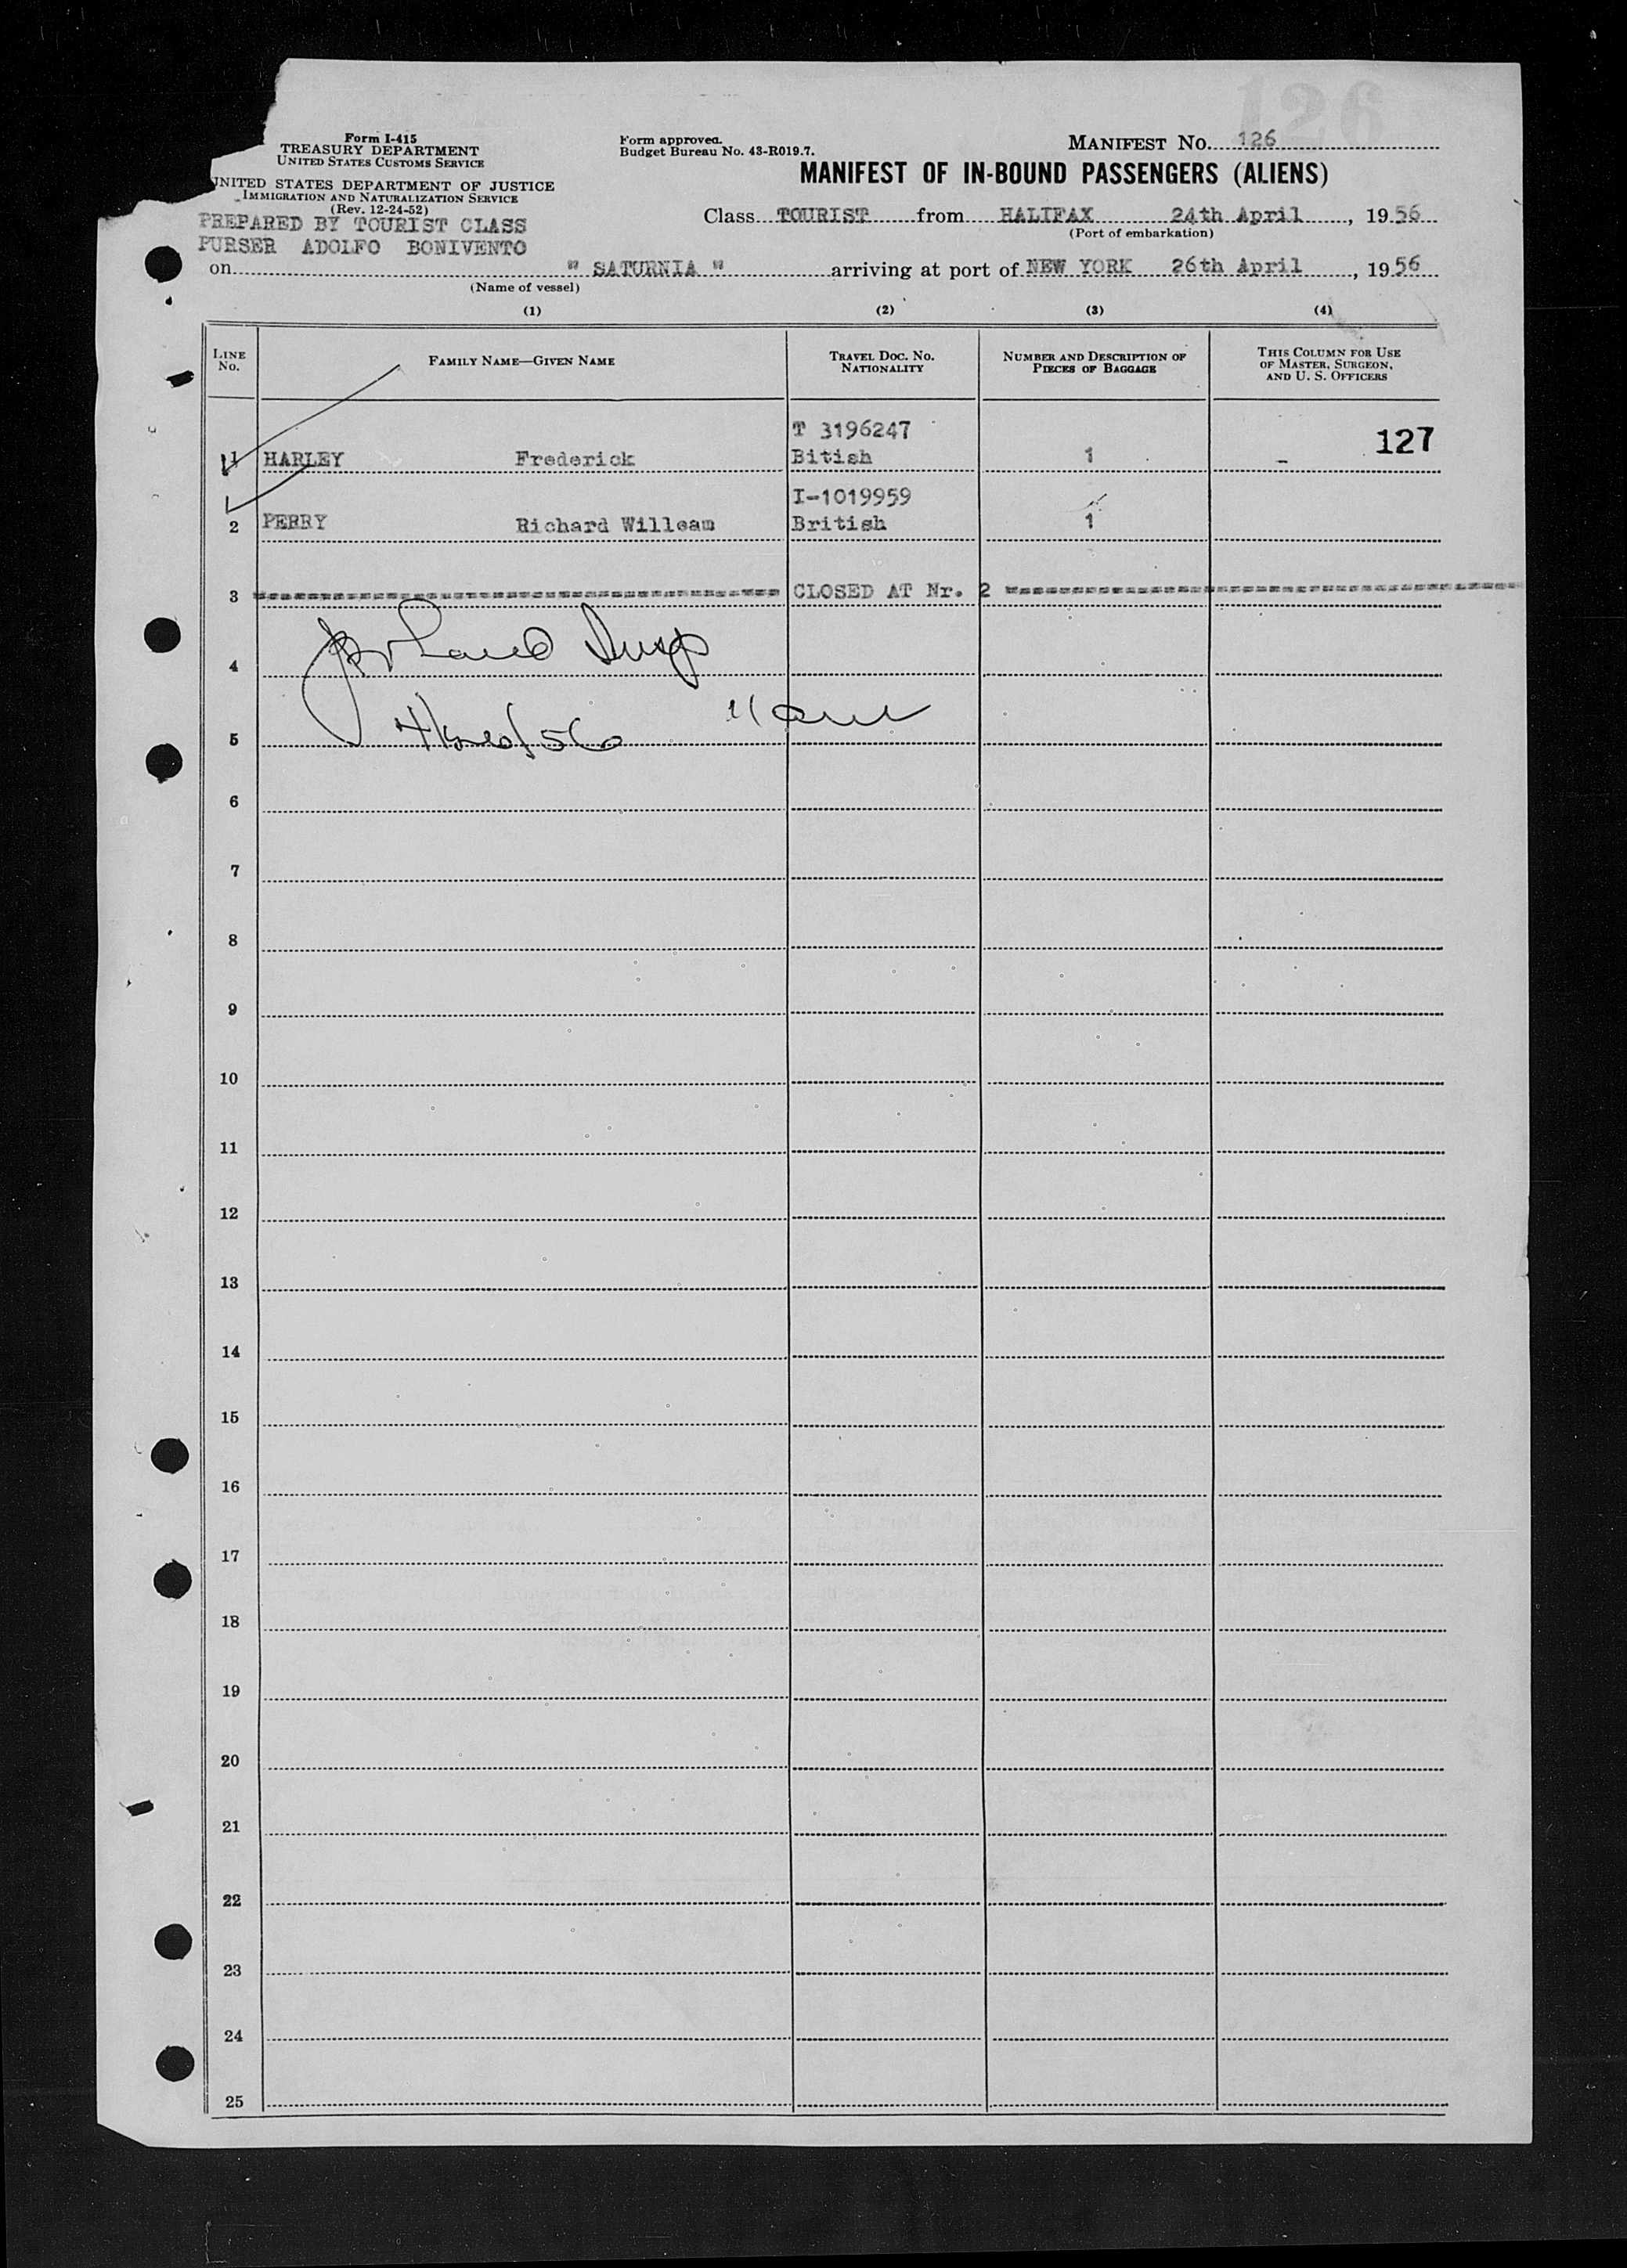 126
Form I-415
TREASURY DEPARTMENT
UNITED STATES CUSTOMS SERVICE
UNITED STATES DEPARTMENT OF JUSTICE
IMMIGRATION AND NATURALIZATION SERVICE
(Rev. 12-24-52)
PREPARED BY TOURIST CLASS
PURSER ADOLFO BONIVENTO
Form approved.
Budget Bureau No. 43-R019.7.
MANIFEST No. 126
MANIFEST OF IN-BOUND PASSENGERS (ALIENS)
Class TOURIST from HALIFAX 24th April, 1956
(Port of embarkation)
on " SATURNIA " arriving at port of NEW YORK 26th April, 1956
(Name of vessel)
(1) (2) (3) (4)
LINE No. FAMILY NAME—GIVEN NAME TRAVEL DOC. NO. NATIONALITY NUMBER AND DESCRIPTION OF PIECES OF BAGGAGE THIS COLUMN FOR USE OF MASTER, SURGEON, AND U. S. OFFICERS
T 3196247 127
1 HARLEY Frederick Bitish 1 -
I-1019959
2 PERRY Richard Willeam British 1
3 CLOSED AT Nr. 2
4
5
6
7
8
9
10
11
12
13
14
15
16
17
18
19
20
21
22
23
24
25